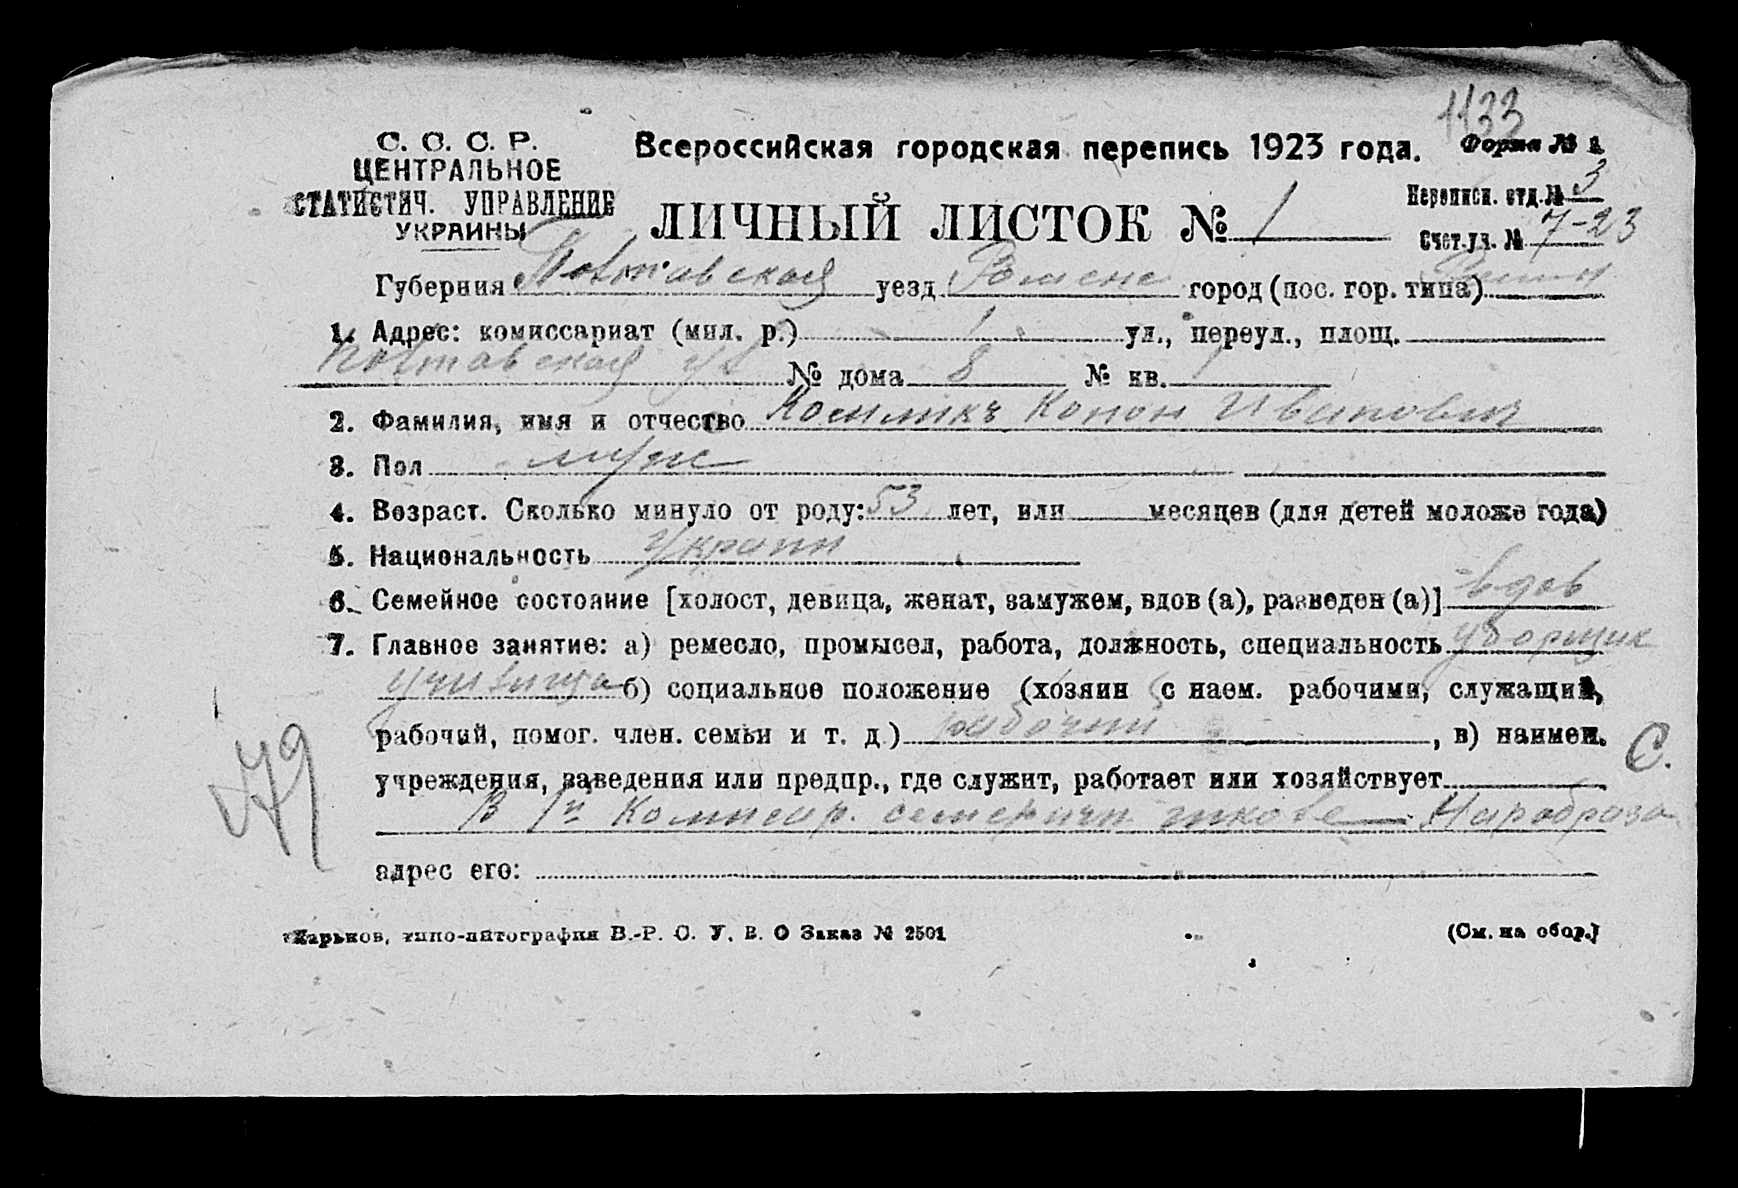 1133
С. С. С. Р.
ЦЕНТРАЛЬНОЕ
СТАТИСТИЧ. УПРАВЛЕНИЕ
УКРАИНЫ
Всероссийская городская перепись 1923 года.
Форма № 1
ЛИЧНЫЙ ЛИСТОК № 1
Переписн. отд. № 3
Счет. уч. № 7-23
Губерния Полтавская уезд Роменс город (пос. гор. типа)
1. Адрес: комиссариат (мил. р.) 1 ул., переул., площ.
Полтавская ул № дома 8 № кв. 1
2. Фамилия, имя и отчество Конон Иванович
3. Пол муж
4. Возраст. Сколько минуло от роду: 53 лет, или месяцев (для детей моложе года)
5. Национальность Украин
6. Семейное состояние [холост, девица, женат, замужем, вдов (а), разведен (а)] вдов
7. Главное занятие: а) ремесло, промысел, работа, должность, специальность уборщик
училища б) социальное положение (хозяин с наем. рабочими, служащий,
рабочий, помог. член. семьи и т. д.) рабочий, в) наимен.
учреждения, заведения или предпр., где служит, работает или хозяйствует
В 1й школе Наробраза
адрес его:
79
С.
Харьков, типо-литография В.-Р. С. У. В. О Заказ № 2501
(См. на обор.)